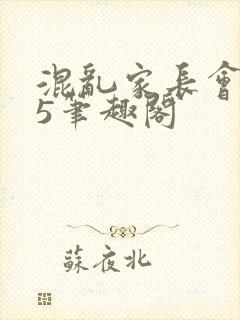 混亂家長會
5筆趣閣
蘇夜北